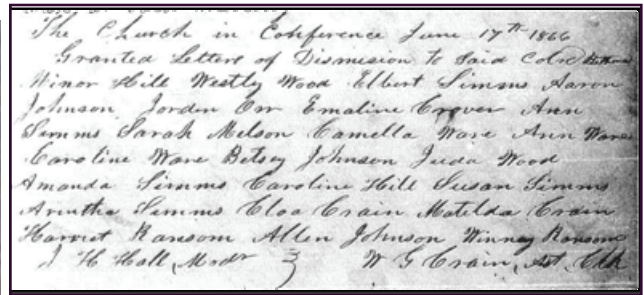 The Church in Conference June 17th 1866
Granted Letters of Dismision to Said Cold
Minor Hill Westly Wood Elbert Simms Aaron
Johnson Jorden Orr Emaline Crover Ann
Simms Sarah Melson Camella Ware Ann Ware
Caroline Ware Betsey Johnson Juda Wood
Amanda Simms Caroline Hill Susan Simms
Arintha Simms Cloa Crain Matilda Crain
Harriet Ransom Allen Johnson Winney Ransom
J H Hall, Modr W G Crain, Ast. Clk